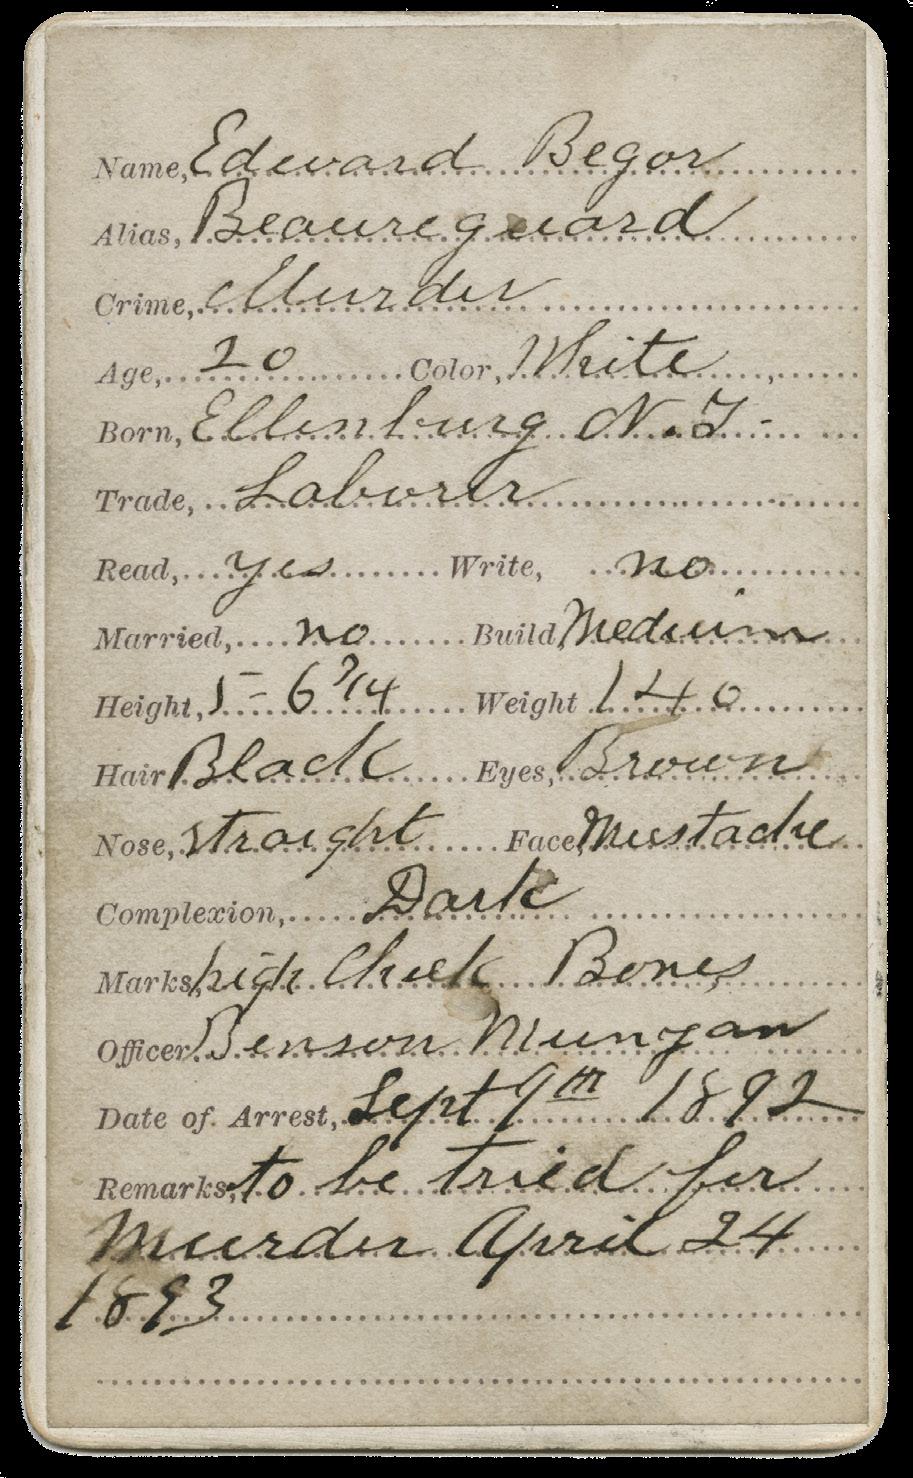 Name, Edward Begor
Alias, Beaureguard
Crime, Murder
Age, 20 Color, White
Born, Ellenburg N.Y.
Trade, Laborer
Read, yes Write, no
Married, no Build, Medium
Height, 5-6 3/4 Weight 140
Hair Black Eyes, Brown
Nose, straight Face, Mustache
Complexion, Dark
Marks, high Cheek Bones
Officer, Benson Mungan
Date of Arrest, Sept 9th 1892
Remarks, to be tried for
Murder April 24
1893